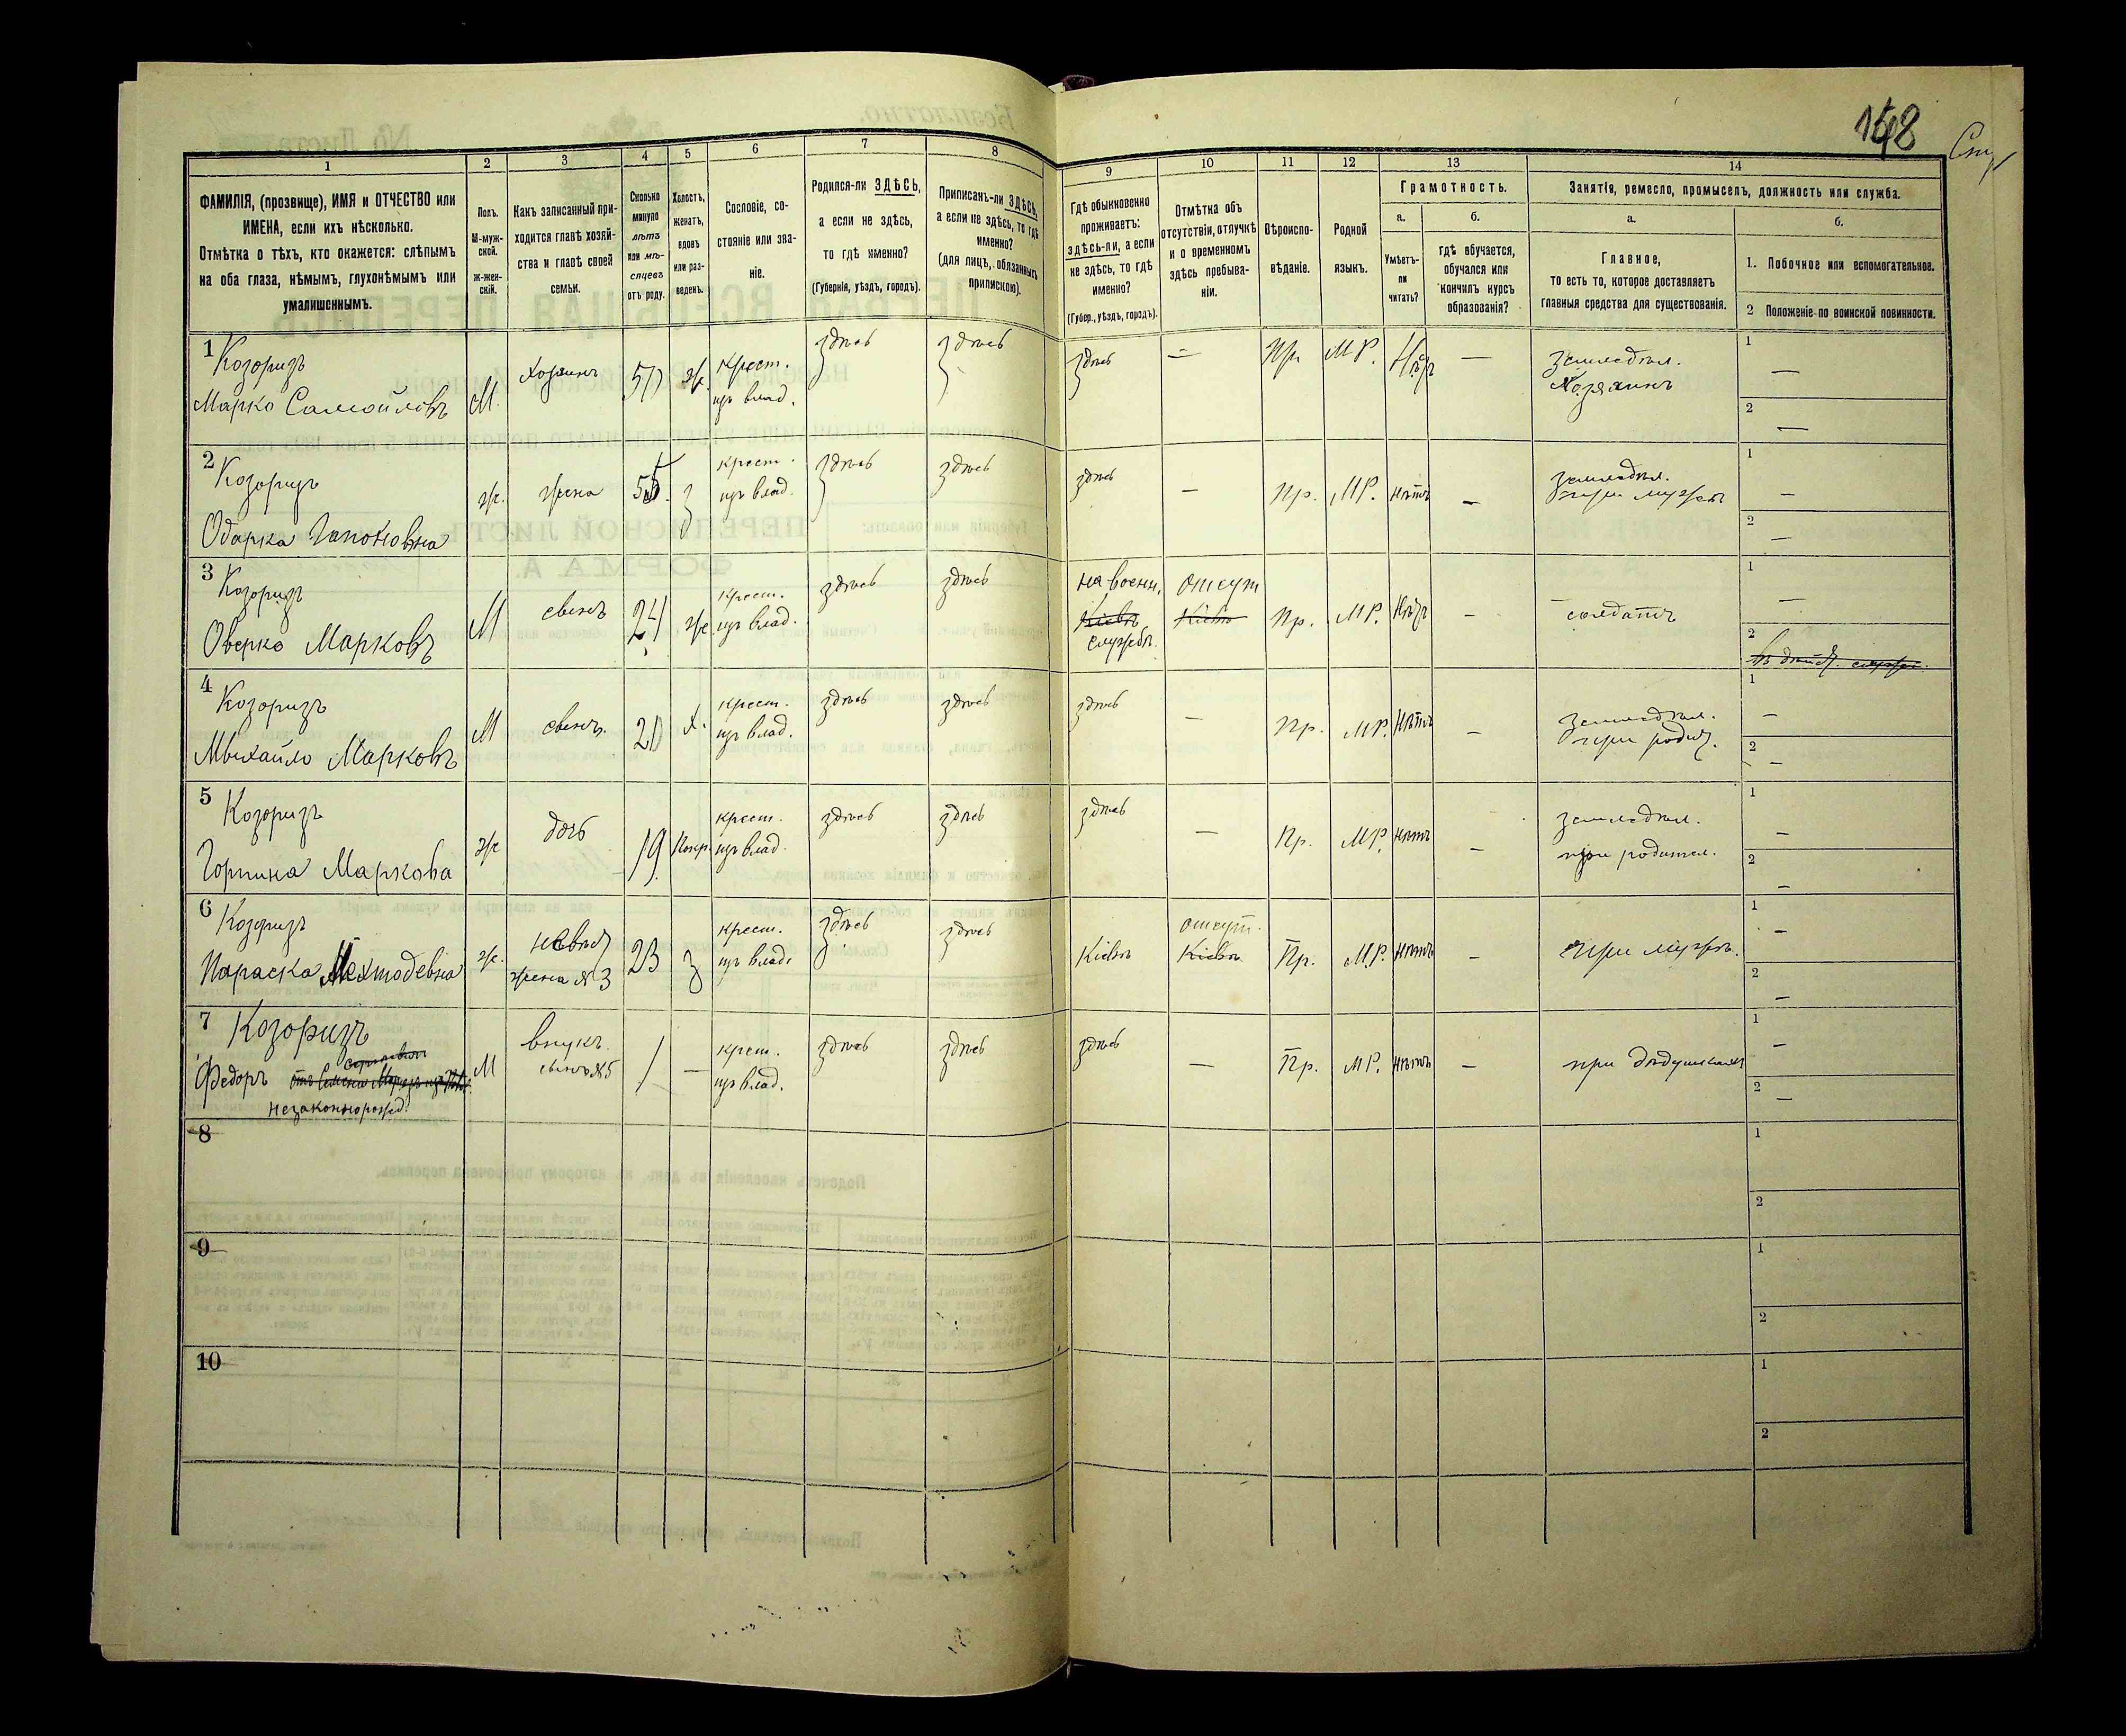 148
1
2
3
4
5
6
7
8
9
10
11
12
13
14
ФАМИЛІЯ, (прозвище), ИМЯ и ОТЧЕСТВО или
ИМЕНА, если ихъ нѣсколько.
Отмѣтка о тѣхъ, кто окажется: слѣпымъ
на оба глаза, нѣмымъ, глухонѣмымъ или
умалишеннымъ.
Полъ.
М-муж-
ской.
ж-жен-
скій.
Какъ записанный при-
ходится главѣ хозяй-
ства и главѣ своей
семьи.
Сколько
минуло
лѣтъ
или мѣ-
сяцевъ
отъ роду.
Холостъ,
женатъ,
вдовъ
или раз-
веденъ.
Сословіе, со-
стояніе или зва-
ніе.
Родился-ли ЗДѢСЬ,
а если не здѣсь,
то гдѣ именно?
(Губернія, уѣздъ, городъ).
Приписанъ-ли ЗДѢСЬ,
а если не здѣсь, то гдѣ
именно?
(для лицъ, обязанныхъ
припискою).
Гдѣ обыкновенно
проживаетъ:
здѣсь-ли, а если
не здѣсь, то гдѣ
именно?
(Губер., уѣздъ, городъ).
Отмѣтка объ
отсутствіи, отлучкѣ
и о временномъ
здѣсь пребыва-
ніи.
Вѣроиспо-
вѣданіе.
Родной
языкъ.
Грамотность.
а.
б.
Умѣетъ-
ли
читать?
гдѣ обучается,
обучался или
кончилъ курсъ
образованія?
Занятія, ремесло, промыселъ, должность или служба.
а.
б.
Главное,
то есть то, которое доставляетъ
главныя средства для существованія.
1. Побочное или вспомогательное.
2 Положеніе по воинской повинности.
1 Козоризъ
Марко Самойловъ
М.
Хозяинъ
ж.
крест.
изъ влад.
здѣсь
здѣсь
здѣсь
—
Пр.
МР.
Нѣтъ
—
земледѣл.
Хозяинъ
1
—
2
—
2 Козоризъ
Одарка Гапоновна
ж.
жена
55
з
крест.
изъ влад.
здѣсь
здѣсь
здѣсь
—
Пр.
МР.
нѣтъ
—
земледѣл.
при мужѣ
1
—
2
—
3 Козоризъ
Оверко Марковъ
М
сынъ
24
ж.
крест.
изъ влад.
здѣсь
здѣсь
на воен.
Кіевъ
службѣ.
отсут
Кіевъ
Пр.
МР.
Нѣтъ
—
солдатъ
1
—
2
4 Козоризъ
Мыхайло Марковъ
М
сынъ.
20
х.
крест.
изъ влад.
здѣсь
здѣсь
здѣсь
—
Пр.
МР.
Нѣтъ
—
земледѣл.
при родит.
1
—
2
—
5 Козоризъ
Горпина Маркова
ж
дочь
19
крест.
изъ влад.
здѣсь
здѣсь
здѣсь
—
Пр.
МР.
нѣтъ
—
земледѣл.
при родител.
1
—
2
—
6 Козоризъ
Параска
ж.
невѣст
жена № 3
23
з
крест.
изъ влад.
здѣсь
здѣсь
Кіевъ
отсут.
Кіевъ
Пр.
МР.
нѣтъ
—
при мужѣ.
1
—
2
—
7 Козоризъ
Федоръ
незаконнорожд.
М
внукъ
сынъ №5
1
—
крест.
изъ влад.
здѣсь
здѣсь
здѣсь
—
Пр.
МР.
нѣтъ
—
при
1
—
2
—
8
1
2
9
1
2
10
1
2